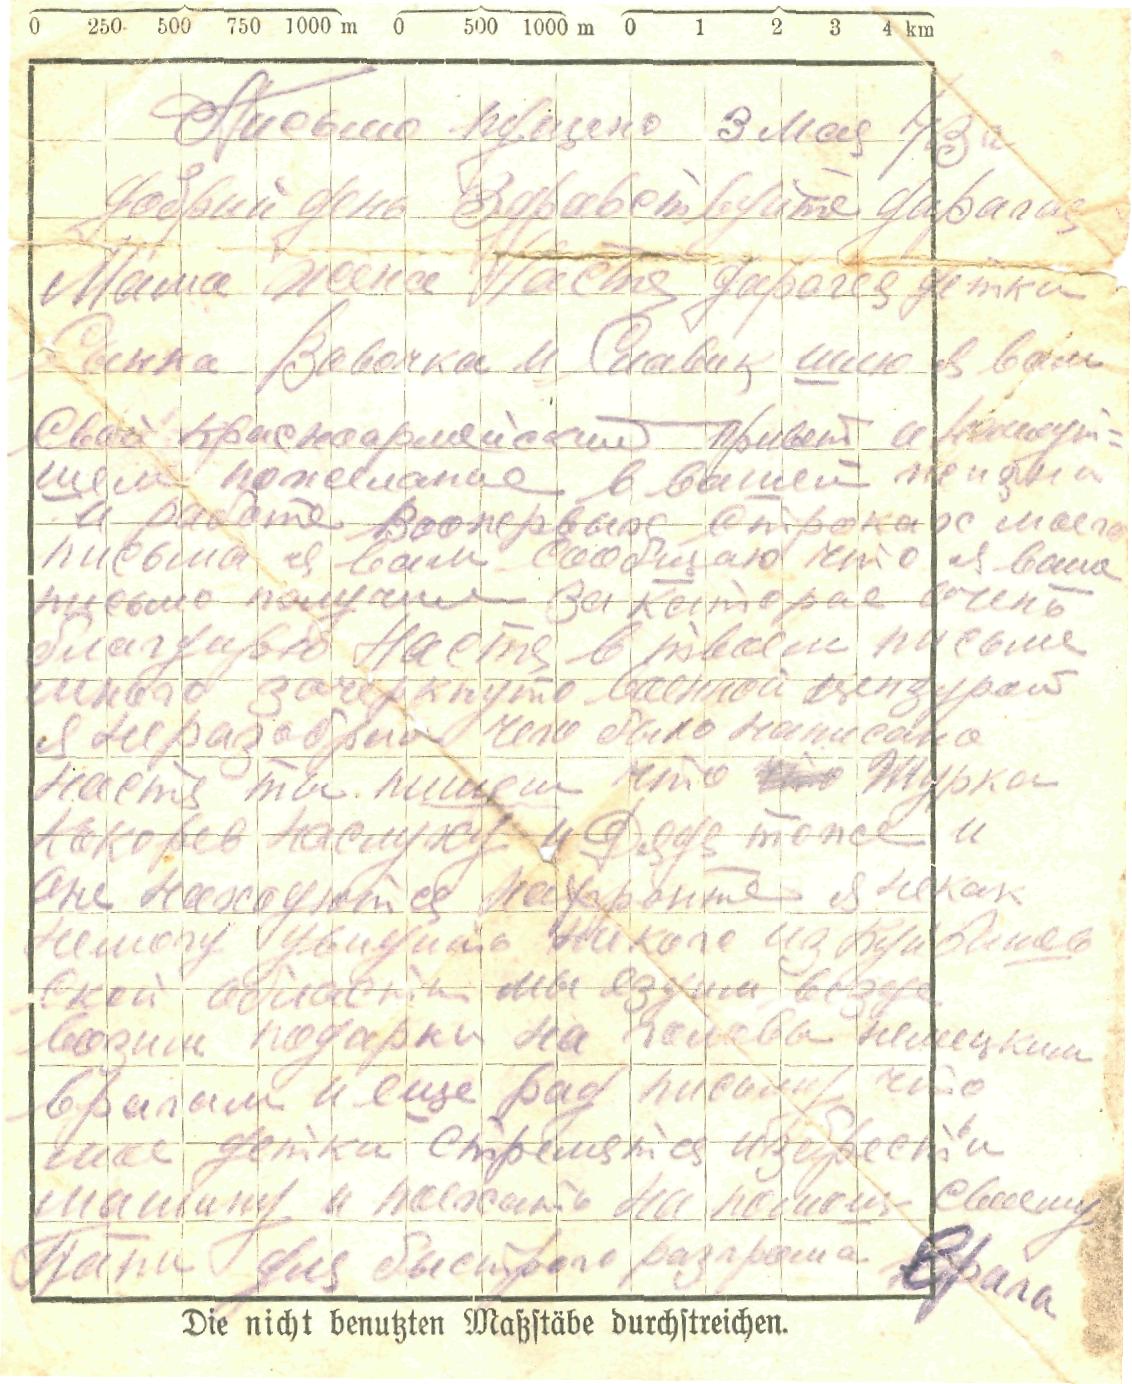 0 250 500 750 1000 m 0 500 1000 m 0 1 2 3 4 km
Письмо пущено 3 мая 43 г
Добрый день Здравствуйте дарагия
Мама жена Настя дарагея детки
Сынка Вовочка и Славик шлю я вам
свой красноармейский привет и наилут=
шем пожелание в вашей жизни
и работе Воопервых строках моего
письма я вам сообщаю что я ваше
письмо получил за каторае очень
благодарю Настя в твоем письме
много зачеркнуто военной цензурой
я неразобрал чего было написано
Настя ты пишеш что Шурка
наслужбу и Дядя тоже и
оне находются нафронте я некак
немогу увидить некого из Куйбишев
ской области мы ездим везде
возим подарки на головы немецким
врагам и еще рад письму что
мое детки стремятся изобрести
машину и поехать на помощь своему
Папи для быстрого разгрома врага
Die nicht benutzten Maßstäbe durchstreichen.